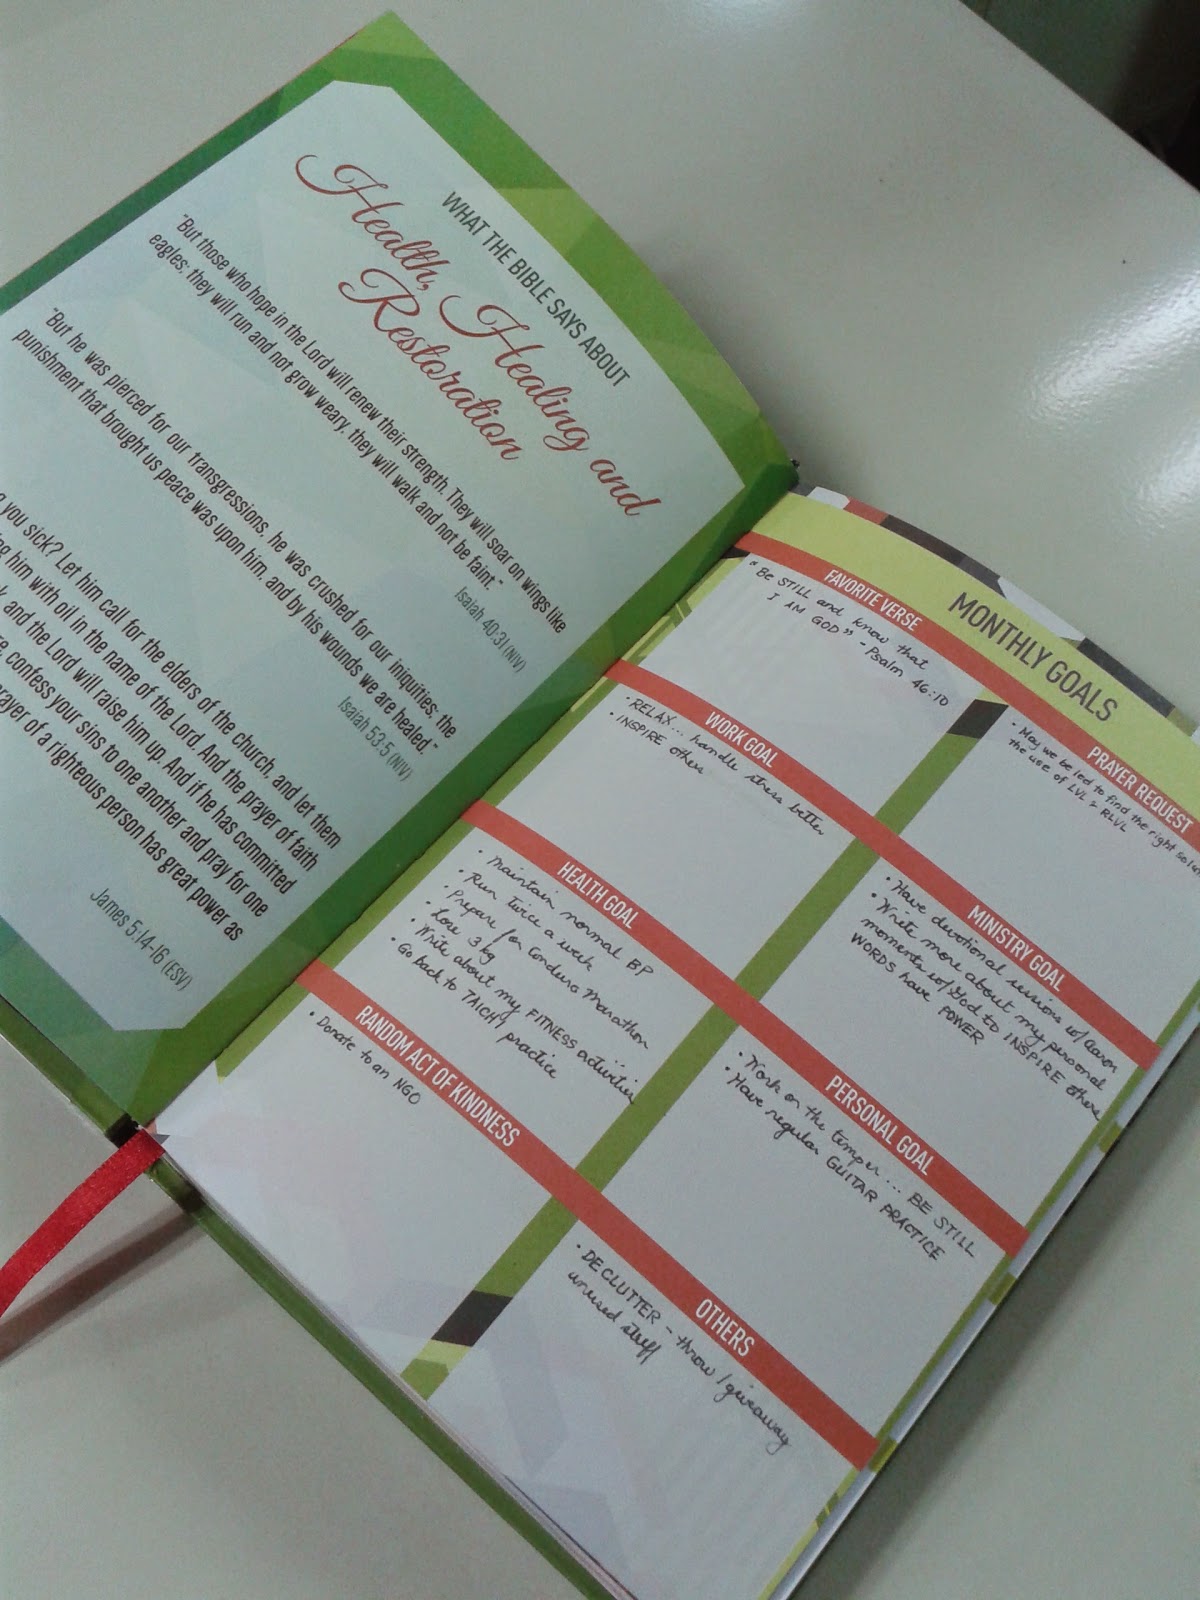 WHAT THE BIBLE SAYS ABOUT
Health, Healing and
Restoration
"But those who hope in the Lord will renew their strength. They will soar on wings like
eagles; they will run and not grow weary, they will walk and not be faint."
Isaiah 40:31 (NIV)
"But he was pierced for our transgressions, he was crushed for our iniquities; the
punishment that brought us peace was upon him, and by his wounds we are healed."
Isaiah 53:5 (NIV)
you sick? Let him call for the elders of the church, and let them
him with oil in the name of the Lord. And the prayer of faith
and the Lord will raise him up. And if he has committed
confess your sins to one another and pray for one
prayer of a righteous person has great power as
James 5:14-16 (ESV)
MONTHLY GOALS
FAVORITE VERSE
"Be STILL and know that
I AM
GOD" - Psalm 46:10
PRAYER REQUEST
• May we be led to find the right
the use of LVL & RLVL
WORK GOAL
• RELAX... handle stress better
• INSPIRE others
MINISTRY GOAL
• Have devotional sessions w/ Aaron
• Write more about my personal
moments w/ God to INSPIRE others
WORDS have
POWER
HEALTH GOAL
• Maintain normal BP
• Run twice a week
• Prepare for Condura Marathon
• Lose 3 kg
• Write about my FITNESS activities
• Go back to TAICHI practice
PERSONAL GOAL
• Work on the temper... BE STILL
• Have regular GUITAR PRACTICE
RANDOM ACT OF KINDNESS
• Donate to an NGO
OTHERS
• DECLUTTER - throw / giveaway
unused stuff